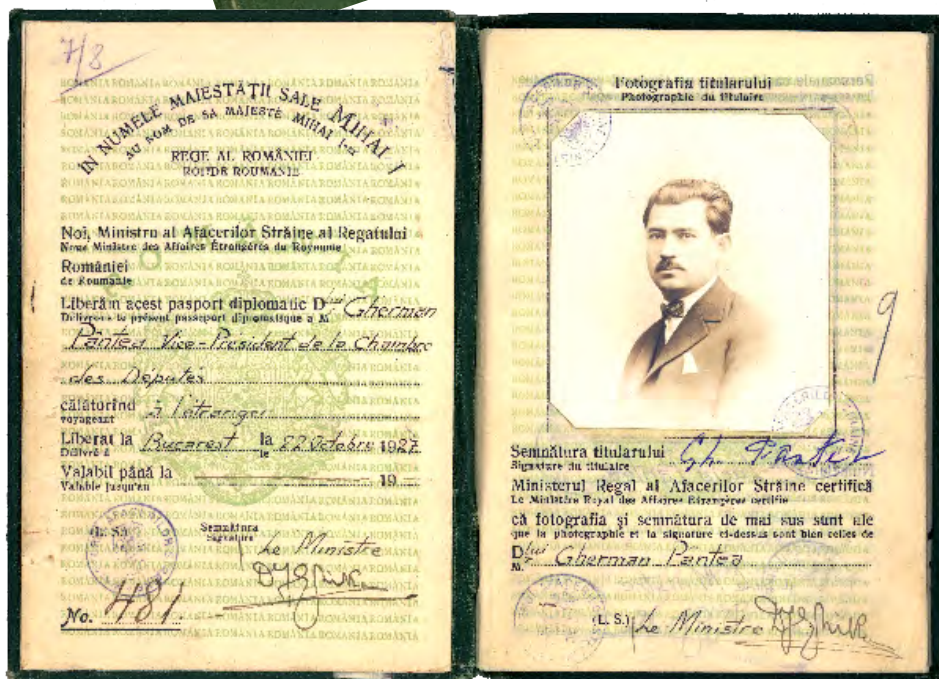 7/8
IN NUMELE MAIESTĂȚII SALE MIHAI I
AU NOM DE SA MAJESTÉ MIHAI I-er
REGE AL ROMÂNIEI
ROI DE ROUMANIE
Noi, Ministru al Afacerilor Străine al Regatului
Nous Ministre des Affaires Étrangères du Royaume
României
de Roumanie
Liberăm acest pasport diplomatic D lui Gherman
Délivrons le présent passeport diplomatique à M
Pântea Vice-President de la Chambre
des Députés
călătorind à l'étranger
voyageant
Liberat la Bucarest la 22 Octobre 1927
Délivré à le
Valabil până la 19
Valable jusqu'au
(L. S.)
Semnătura
Signature
Le Ministre
No. 481.
Fotografia titularului
Photographie du titulaire
9
Semnătura titularului Gh. Pântea
Signature du titulaire
Ministerul Regal al Afacerilor Străine certifică
Le Ministère Royal des Affaires Étrangères certifie
că fotografia și semnătura de mai sus sunt ale
que la photographie et la signature ci-dessus sont bien celles de
D lui Gherman Pântea
M.
(L. S.) Le Ministre